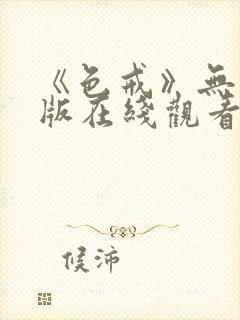 《色戒》無
版在綫觀看
候沛